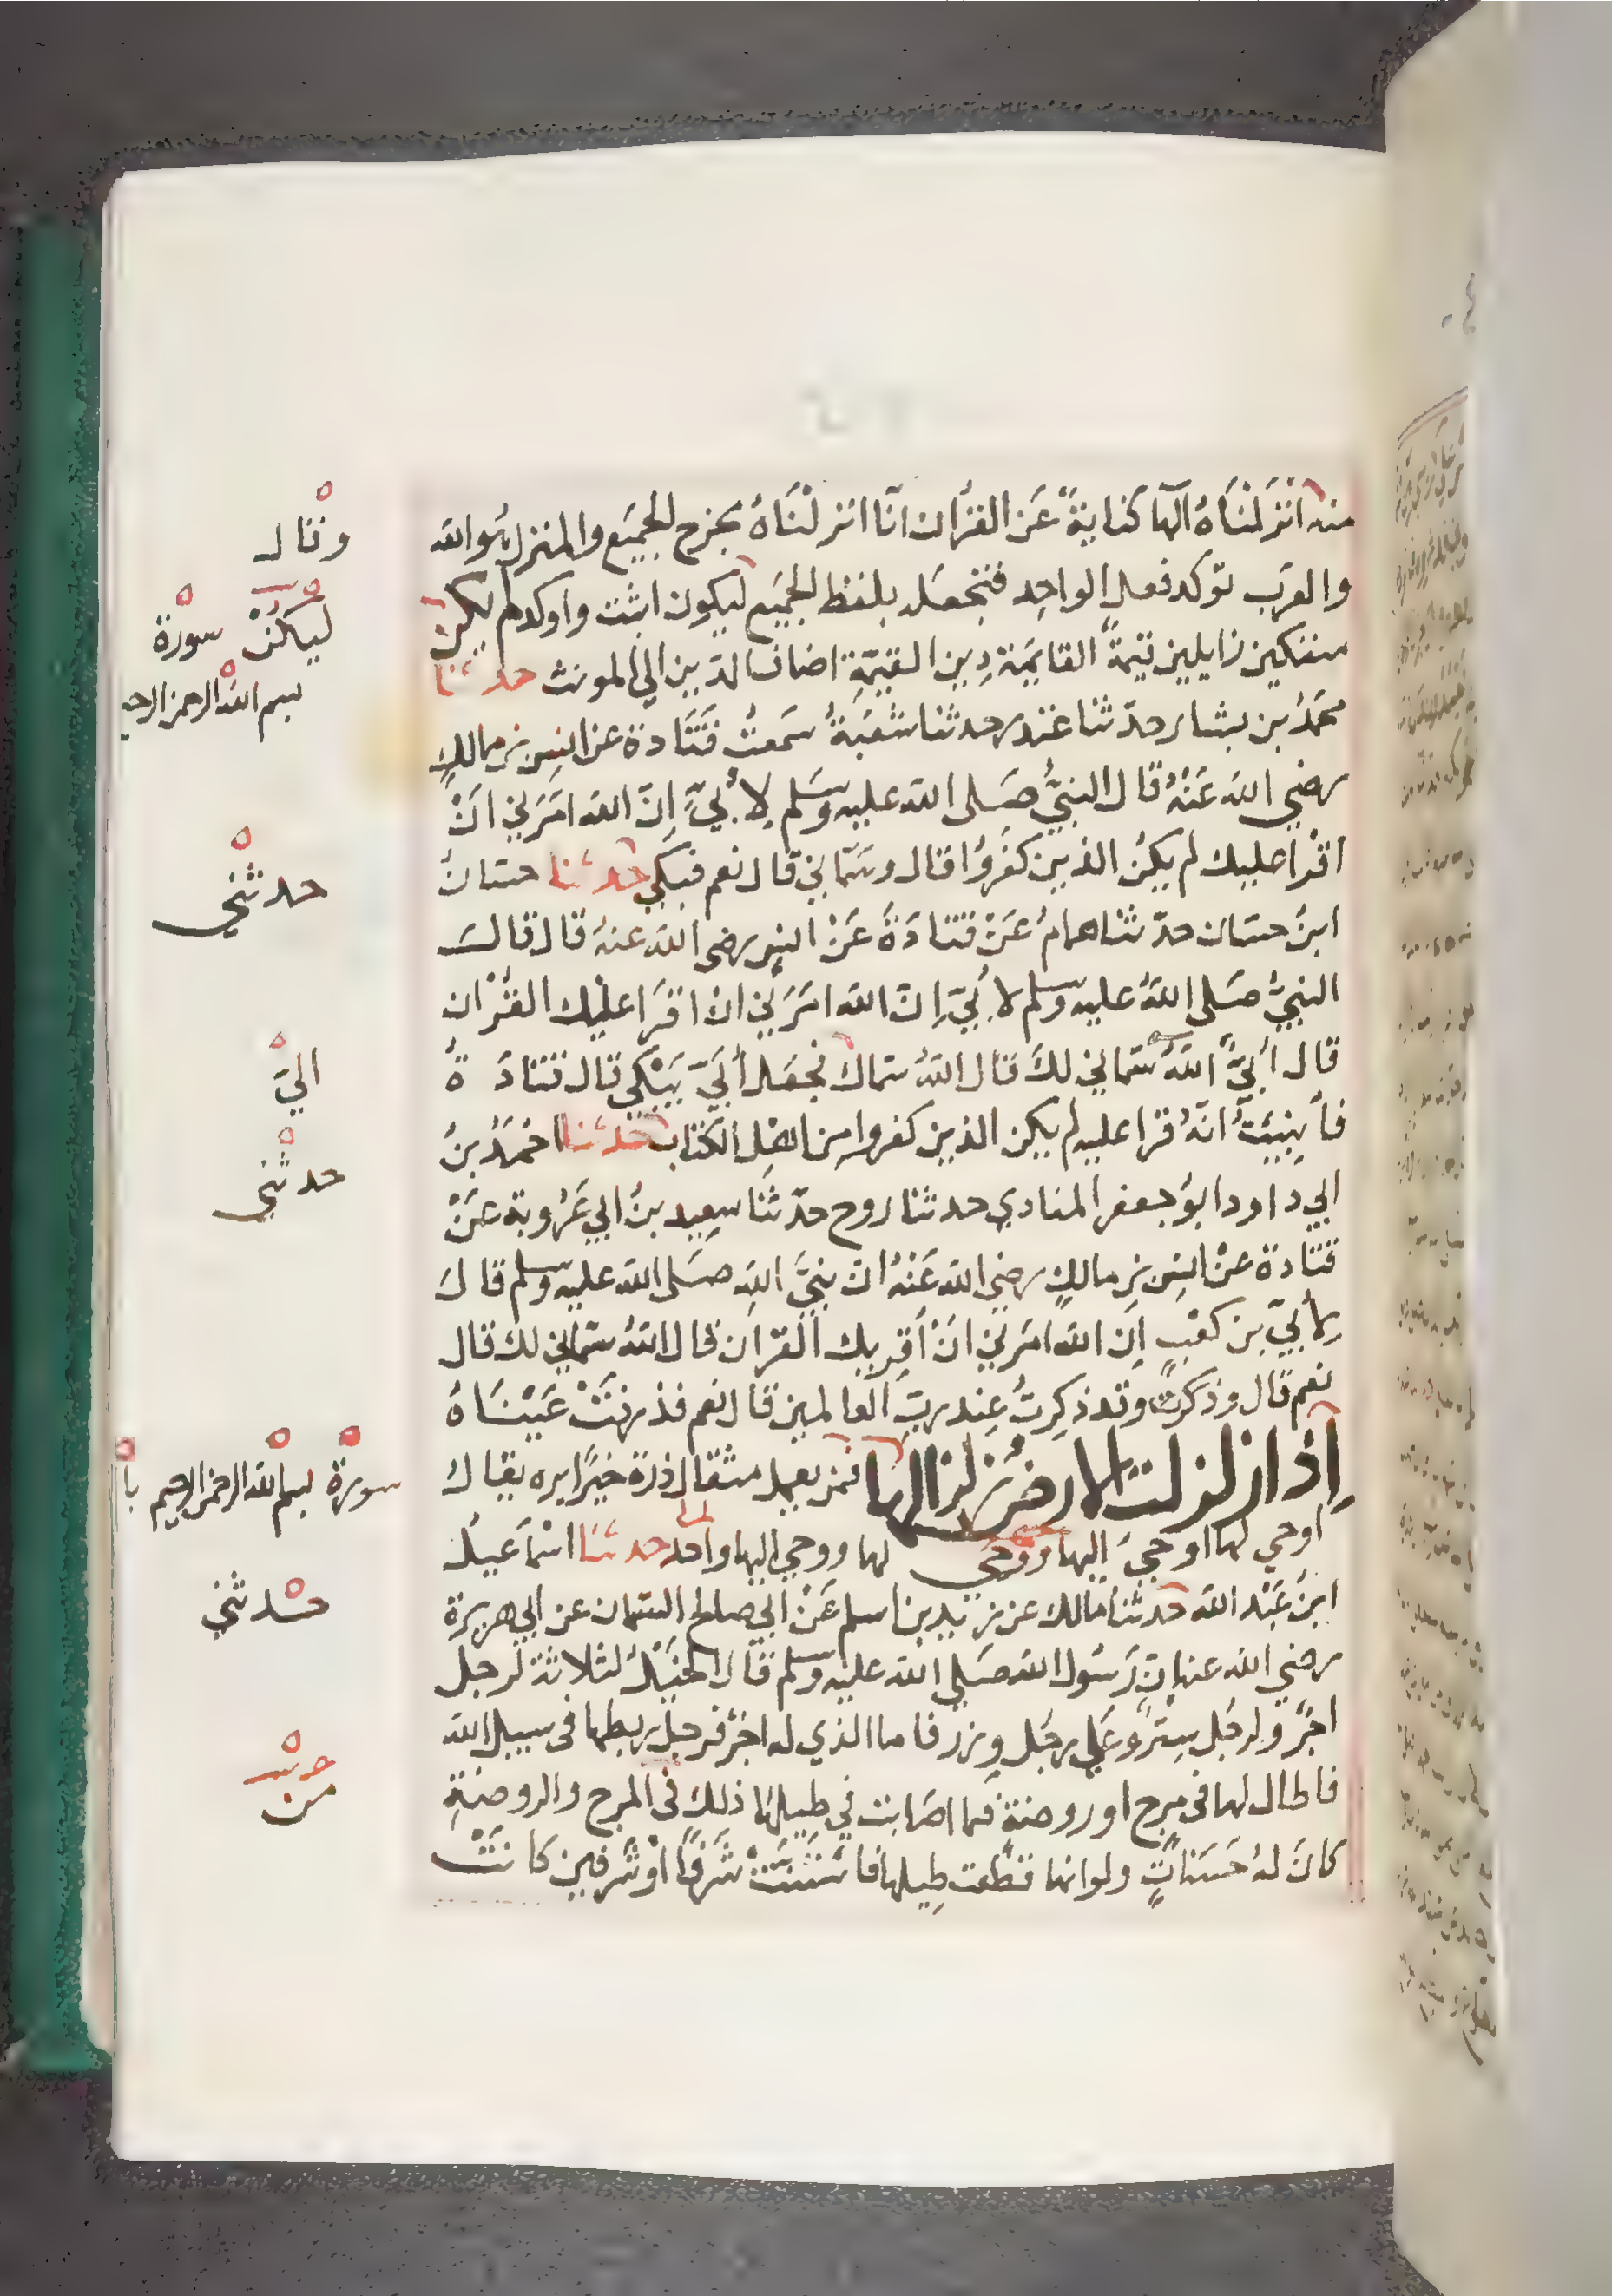 منه انْزَلْنَاهُ الهآ كنايةً عَن القُرْان انّا انزلْنَاهُ مخرج الجميَع والمنزل هُو الله
والعرَب توكد فعل الواحِد فتجعَله بلفظ الجميَع ليكون اثبت واوكد لم يكن
منفكين زايلين قيمةٌ القايمَة دِين القيّمَةِ اضاف الدّين الي المونث حدثنا
محمّدُ بن بشار حدّثنا غندر حدثنا شعْبَةُ سَمعتُ قَتَادة عن انسِ بن مالكٍ
رضي الله عَنْهُ قال النبيُّ صَلى الله عليه وسَلم لِأُبيّ إنّ الله امَرَني انْ
اقْرا عليك لم يكنُ الذين كفَرُوا قال وسَمّاني قال نعم فبكي حدثنا حسّانُ
ابنُ حسّان حدّثنا همامُ عَنْ قتادَةَ عَنْ انسٍ رضي الله عنهُ قال قال
النبيُّ صَلى اللهُ عليه وسلم لاُبيّ إنّ الله امَرَني انْ اقْرَا عليْك القُرْان
قال أُبيٌّ اللّهُ سَمّاني لكَ قال اللّهُ سمّاك فجعَل أُبَيّ يَبْكي قال قتادَ ةُ
فأُنبِئتُ انّهُ قرا عليه لم يكن الذين كفروا من اهْل الكتاب حدثنا احْمَدُ بنُ
ابي داود ابوُ جعفر المنادي حدثنا روح حدّثنا سعِيد بنُ ابي عَرُوبة عَنْ
قتادة عنْ انسِ بنِ مالكٍ رضي الله عَنْهُ انّ نبيَّ اللهِ صَلى الله عليه وسلم قالَ
لِأبيّ بن كعْبٍ إن الله امَرني انْ أقريك القرْان قال اللهُ سمّاني لك قال
نعم قال وقد ذكِرتُ عِند ربّ العالمين قال نعم فذرفَتْ عَيْنَاهُ
إذا زلزلت الارضُ زلزالها فمن يعمل مثقال ذرة خيْرًا يره يقالُ
اوحي لها اوحيَ إليها ووحي لها ووحي اليها واحد حدثنا اسْمَاعيلُ
ابنُ عَبْد الله حدثنا مَالك عن زيد بن اسلم عَنْ ابي صالح السّمان عن ابي هريرة
رضي الله عنه انّ رَسُول الله صَلي الله عليْه وسلم قال الخيْلُ لثلاثة لرجل
اجْرٌ ولرجُل سِتْرٌ وعَلي رجُل وِزر فاما الذي له اجْرٌ فرجل ربطها في سبيل الله
فاطال لها في مرج او روضة فما اصَابت في طيلهَا ذلك في المرج والروضَةِ
كانَ لهُ حَسَناتٍ ولو انها قطعت طِيلها فاسْتَنّتْ شَرَفًا اوْ شرفين كانتْ
وقال
ليَكُنْ سورة
بسم الله الرحمن الرحيم
حدثني
اليّ
حدثني
سورة بسم الله الرحمن الرحيم با
حدثني
من